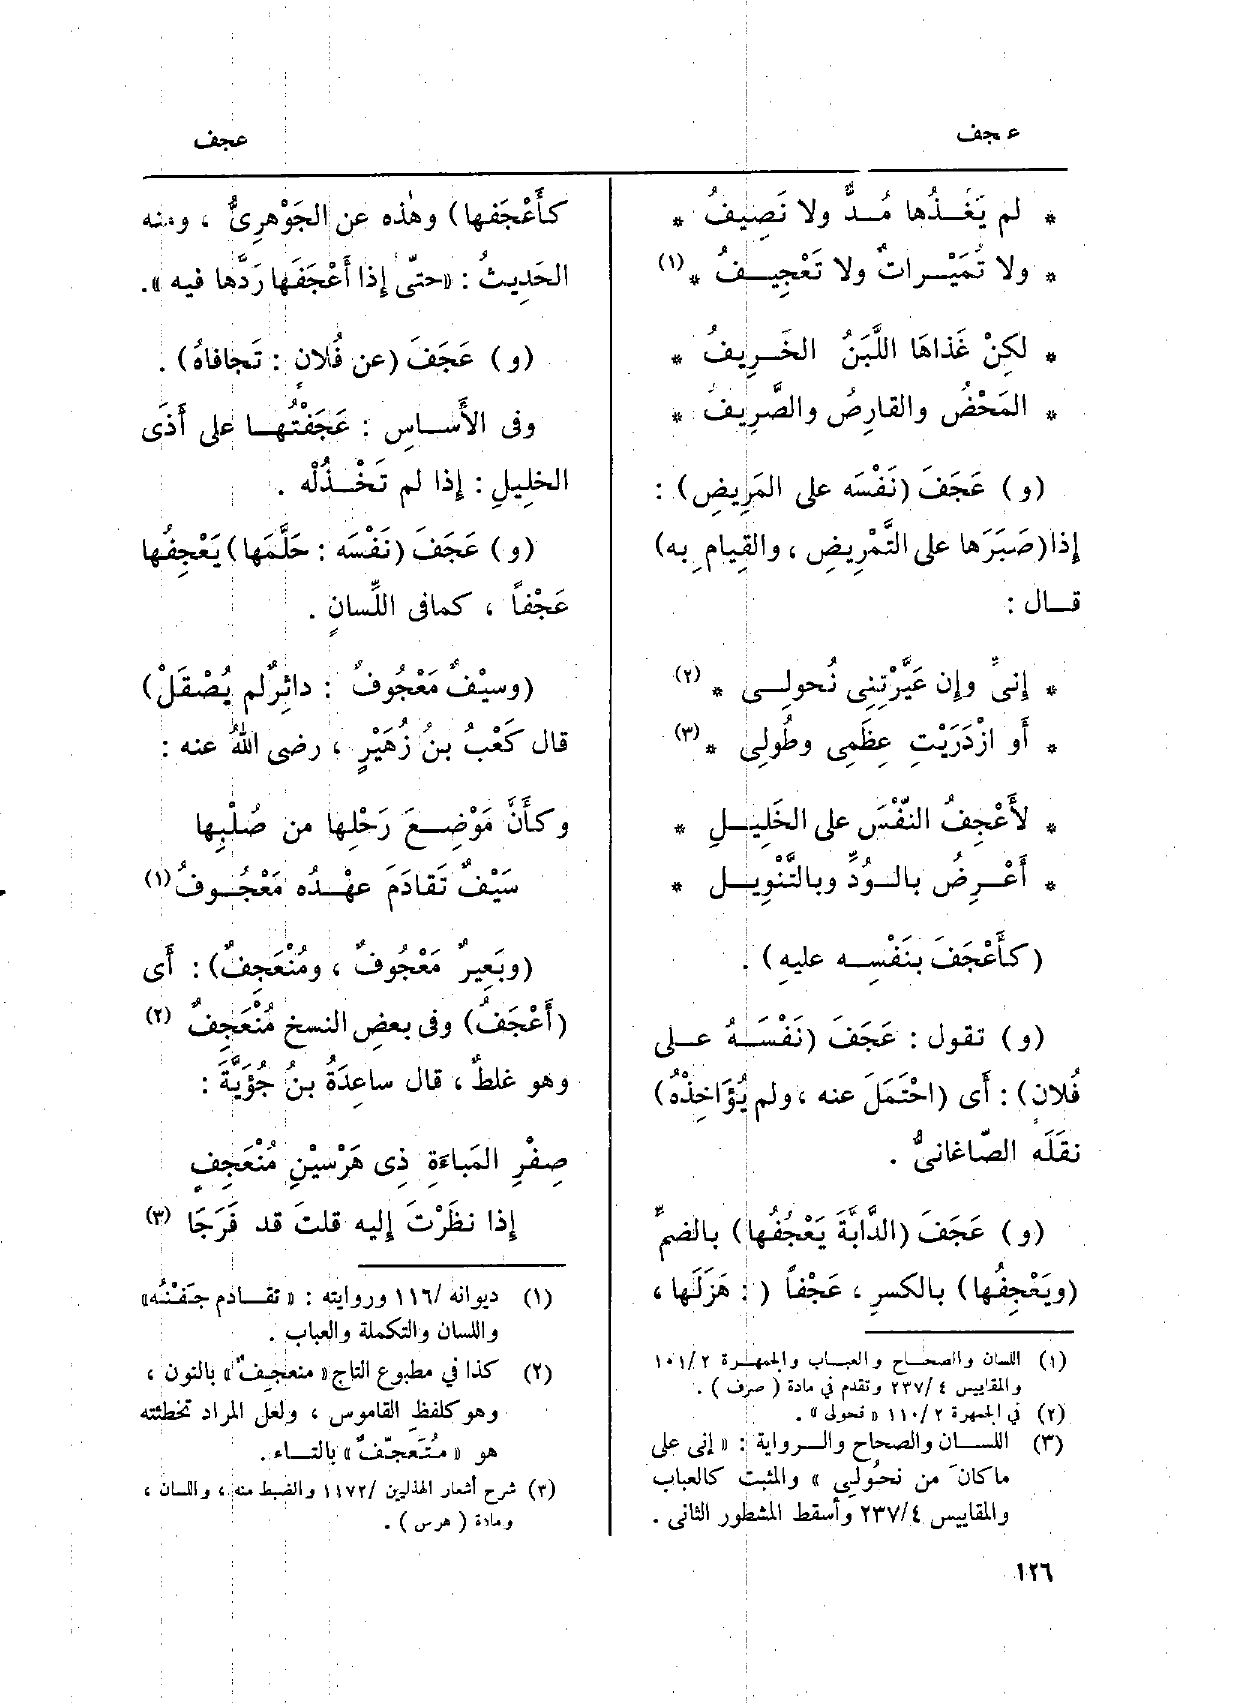 عجف
عجف
* لم يَغْــذُها مُــدٌّ ولا نَصِيفُ *
* ولا تُمَيْــراتٌ ولا تَعْجِيــفُ * (١)
* لكِنْ غَذاهَا اللَّبَنُ الخَــرِيفُ *
* المَحْضُ والقارِصُ والصَّرِيفُ *
(و) عَجَفَ (نَفْسَه على المَرِيضِ) :
إذا (صَبَرَها على التَّمْرِيضِ ، والقِيامِ به)
قــال :
* إنىِّ وإن عَيَّرْتِنِى نُحولِــى * (٢)
* أو ازْدَرَيْتِ عِظَمِى وطُولِى * (٣)
* لأَعْجِفُ النَّفْسَ على الخَلِيــلِ *
* أَعْــرِضُ بالــوُدِّ وبالتَّنْوِيــلِ *
(كأَعْجَفَ بنَفْسِــه عليهِ) .
(و) تقول : عَجَفَ (نَفْسَــهُ عــلى
فُلانٍ) : أى (احْتَمَلَ عنه ، ولم يُؤَاخِذْهُ)
نقَلَه الصّاغانىُّ .
(و) عَجَفَ (الدَّابَّةَ يَعْجُفُها) بالضمِّ
(ويَعْجِفُها) بالكسرِ ، عَجْفاً ( : هَزَلَها ،
(١) اللسان والصحــاح والعبــاب والجمهــرة ١٠١/٢
والمقاييس ٢٣٧/٤ وتقدم في مادة ( صرف ) .
(٢) في الجمهرة ١١٠/٢ « نحولى » .
(٣) اللســان والصحاح والــرواية : « إنى على
ما كانَ من نحُولىِ » والمثبت كالعباب
والمقاييس ٢٣٧/٤ وأسقط المشطور الثانى .
كأَعْجَفها) وهٰذه عن الجَوْهرِىُّ ، ومنه
الحَدِيثُ : «حتّى إذا أَعْجَفَها رَدَّها فيه ».
(و) عَجَفَ (عن فُلانٍ : تَجافاهُ) .
وفى الأَســاسِ : عَجَفْتُهــا على أَذَى
الخلِيلِ : إذا لم تَخْــذُلْه .
(و) عَجَفَ (نَفْسَه : حَلَّمَها) يَعْجِفُها
عَجْفاً ، كما فى اللِّسانِ .
(وسيْفٌ مَعْجُوفٌ : داثِرٌ لم يُصْقَلْ)
قال كَعْبُ بنُ زُهَيْرٍ ، رضى اللهُ عنه :
وكأَنَّ مَوْضِــعَ رَحْلِها من صُلْبِها
سَيْفٌ تَقادَمَ عهْــدُه مَعْجُــوفُ (١)
(وبَعِيرٌ مَعْجُوفٌ ، ومُنْعَجِفٌ) : أى
(أَعْجَفُ) وفى بعضِ النسخِ مُنْعَجِفٌ (٢)
وهو غلطٌ ، قال ساعِدَةُ بنُ جُؤَيَّةَ :
صِفْرِ المَباءَةِ ذِى هَرْسيْنِ مُنْعَجِفٍ
إذا نظَرْتَ إليه قلتَ قد فَرَجَا (٣)
(١) ديوانه /١١٦ وروايته : « تقــادم جَفْنُه»
واللسان والتكملة والعباب .
(٢) كذا في مطبوع التاج « منعجِفٌ » بالنون ،
وهو كلفظِ القاموس ، ولعل المراد تخطئته
هو « مُتَعجِّفٌ » بالتــاء .
(٣) شرح أشعار الهذليين /١١٧٢ والضبط منه ، واللسان ،
ومادة ( هرس ) .
١٢٦